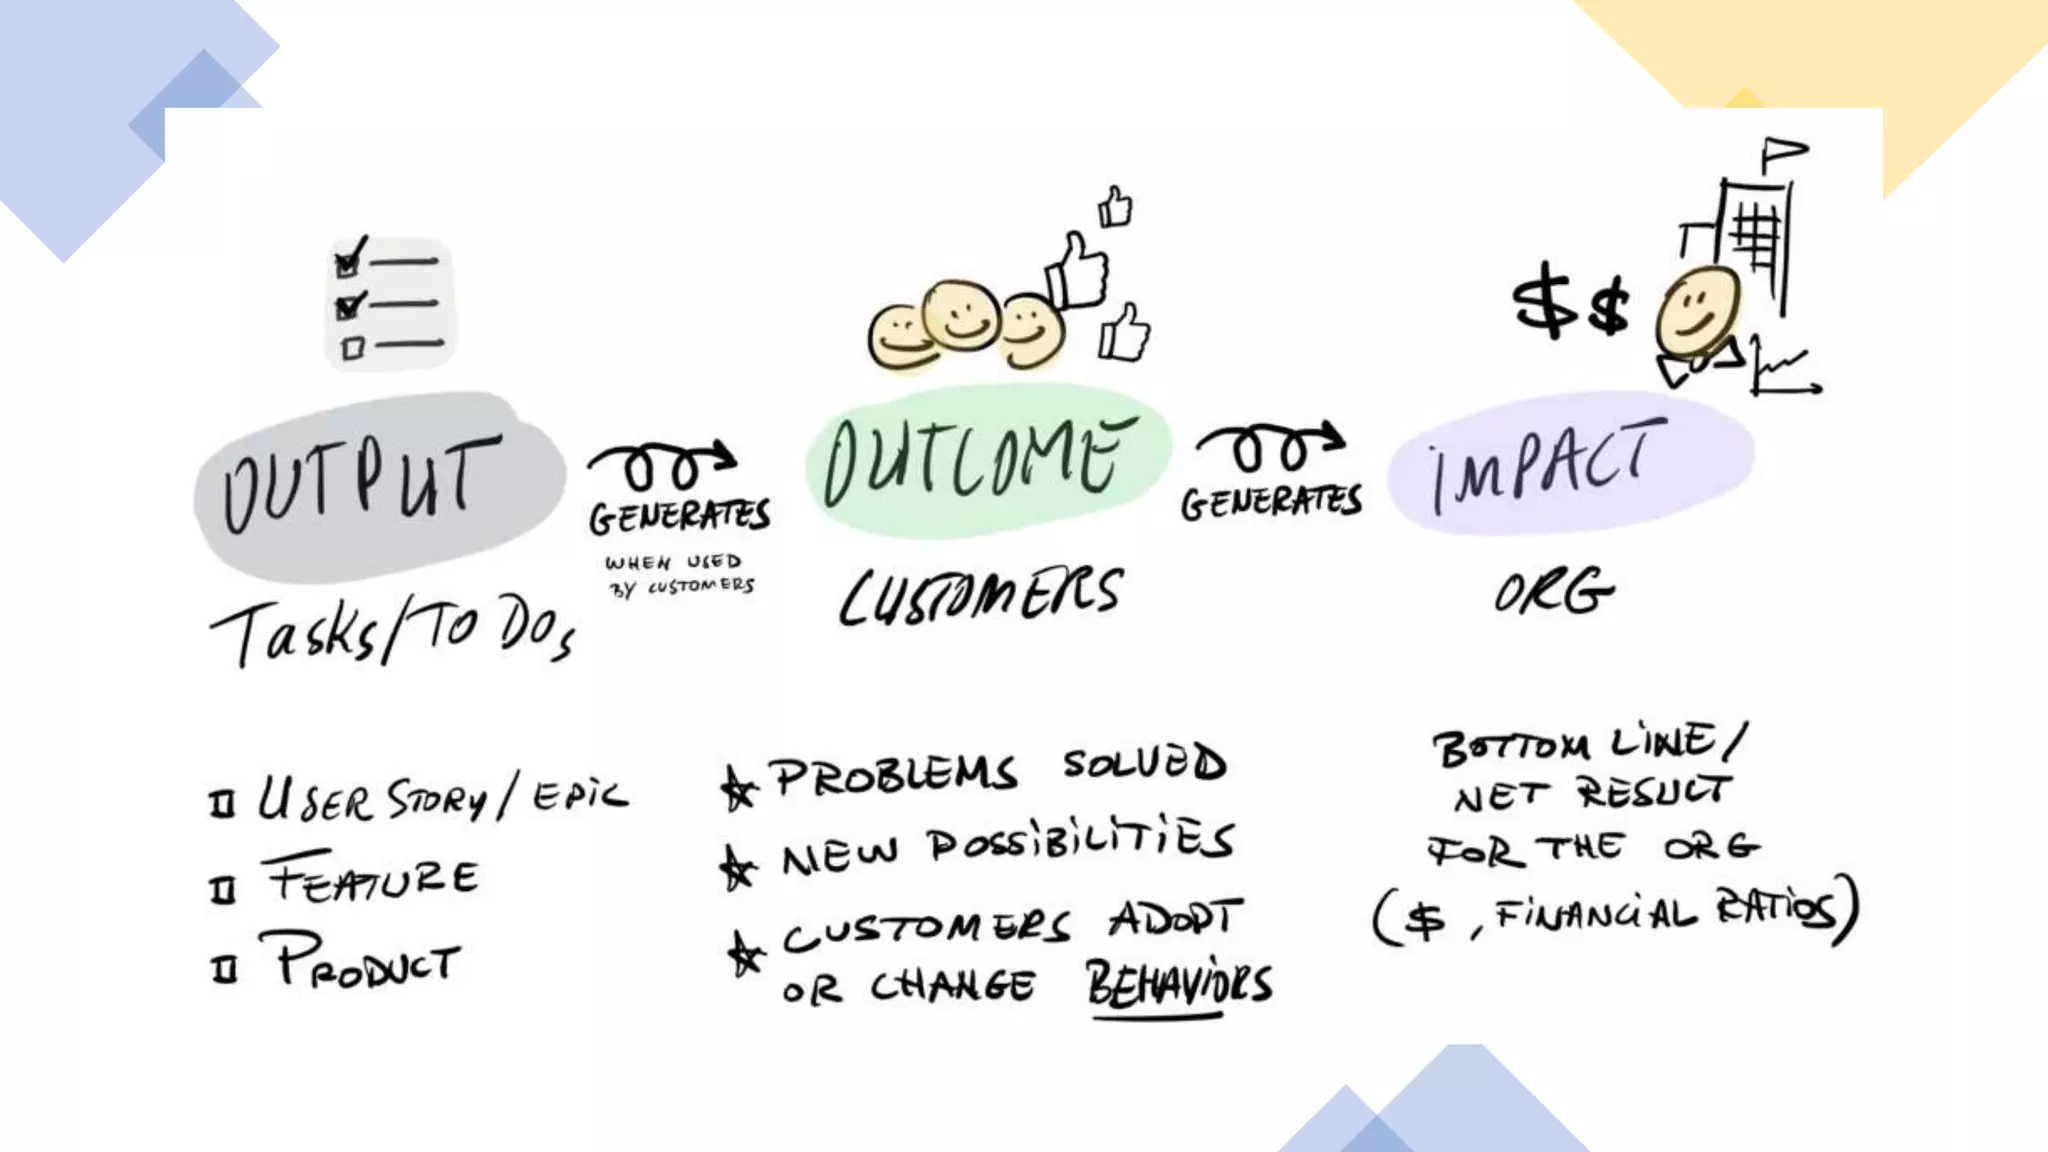 $ $
OUTPUT
GENERATES
WHEN USED
BY CUSTOMERS
Tasks/To Dos
OUTCOME
GENERATES
CUSTOMERS
IMPACT
ORG
USER STORY/EPIC
FEATURE
PRODUCT
PROBLEMS SOLVED
NEW POSSIBILITIES
CUSTOMERS ADOPT
OR CHANGE BEHAVIORS
BOTTOM LINE/
NET RESULT
FOR THE ORG
($, FINANCIAL RATIOS)